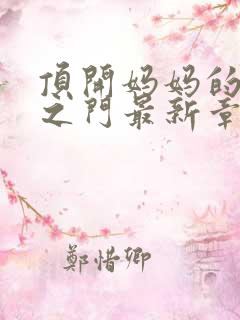 頂開妈妈的
之门最新章
鄭惜卿